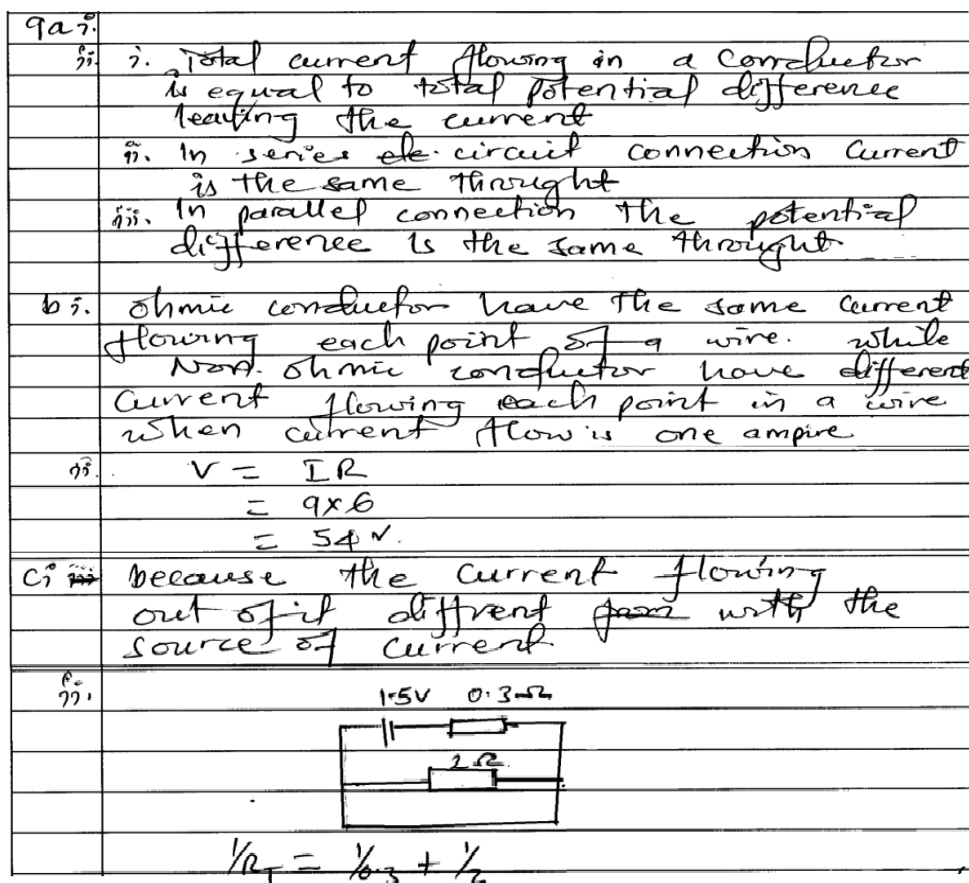 9a i.
ii. i. Total current flowing in a conductor
is equal to total potential difference
leaving the current
ii. In series ele. circuit connection current
is the same throught
iii. In parallel connection the potential
difference is the same throught
b i. ohmic conductor have the same current
flowing each point of a wire. while
Non. ohmic conductor have different
current flowing each point in a wire
when current flow is one ampire
ii. V = IR
= 9x6
= 54 V.
ci iii because the current flowing
out of it diffrent from with the
source of current
ii.
1.5V 0.3Ω
2Ω
1/RT = 1/0.3 + 1/2